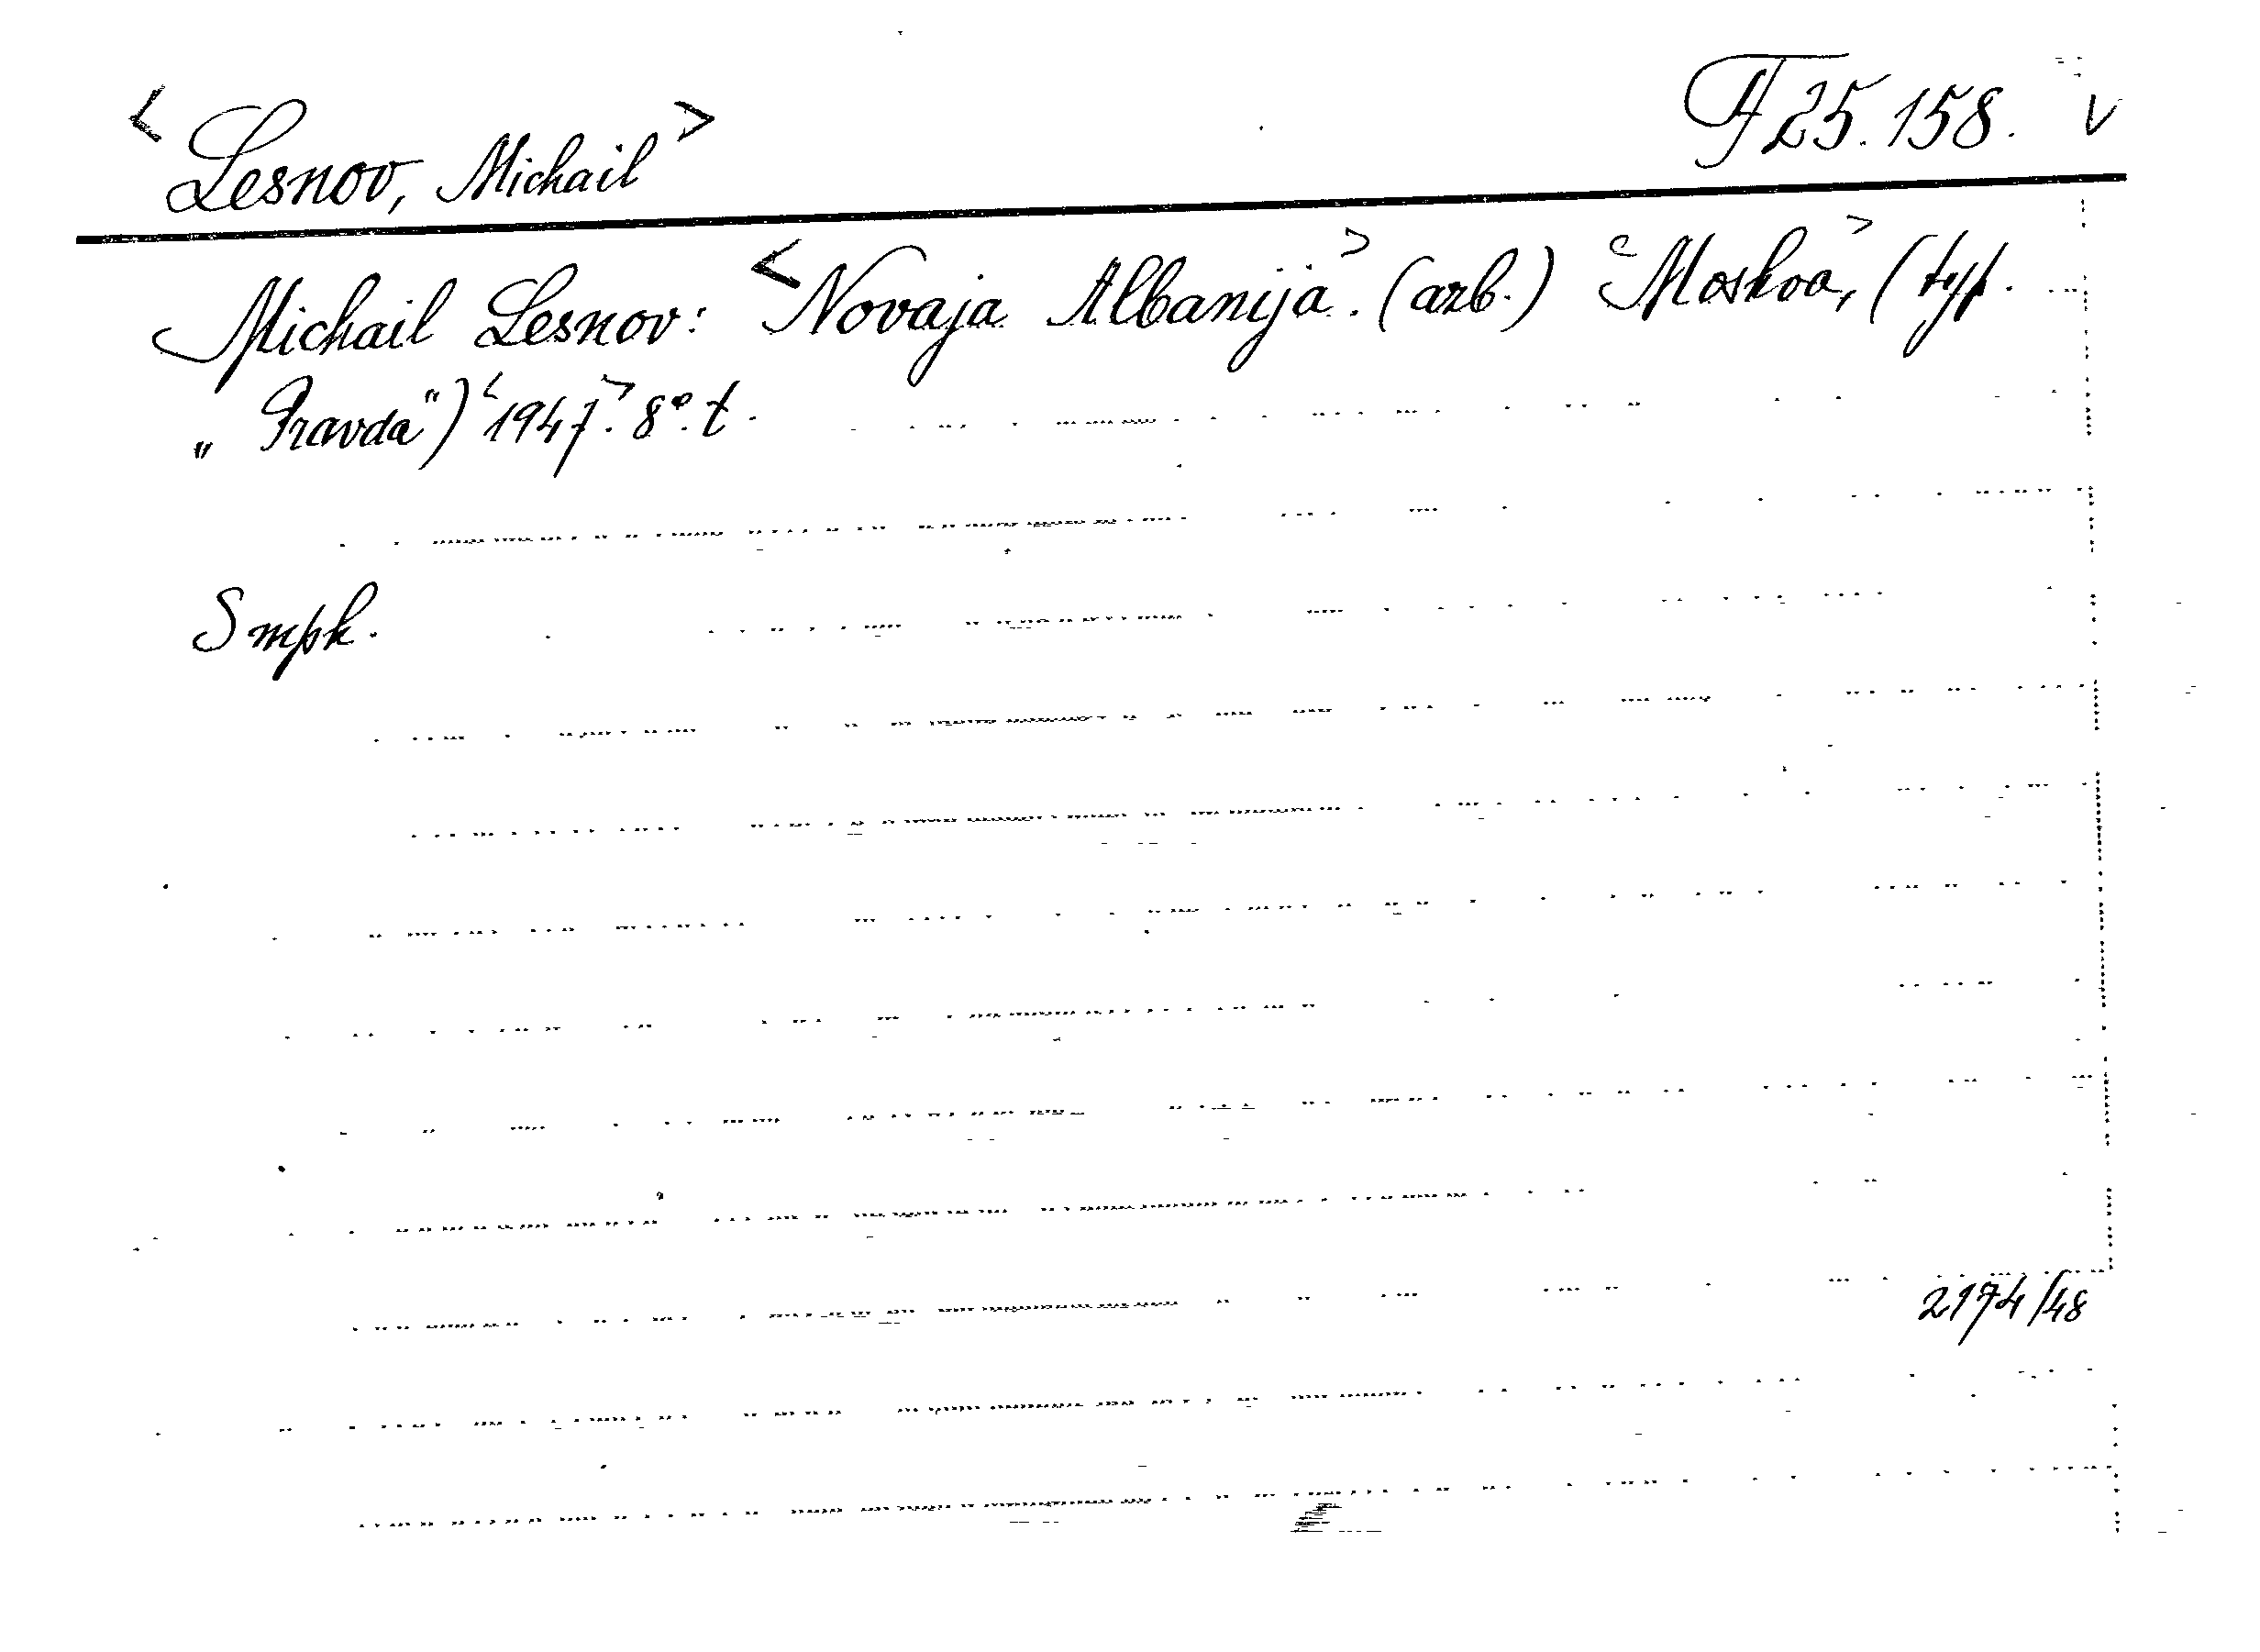 <Lesnov, Michail> F 25.158. v
Michail Lesnov: <Novaja Albanija>. (azb.) <Moskva>, (typ.
„Pravda") <1947>. 8°. t.
Smpk.
2174/48